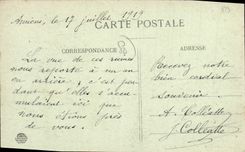 Amiens, le 17 juillet 1919
CARTE POSTALE
CORRESPONDANCE
ADRESSE
La vue de ces ruines
nous reporte à un an
en arrière; c'est pen
dant qu'elles s'accu
mulaient ici que
nous étions près
de vous.
Recevez notre
bien cordial
souvenir
A. Collette
J. Collette